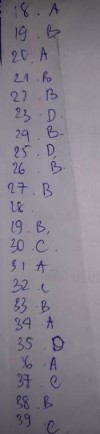 18. A
19. B
20. A
21. B
22. B
23. D.
24. B.
25. D.
26. B
27. B
28.
19. B,
30. C.
31. A
32. C
33. B
34. A
35. D
36. A
37. C
38. B
39. C.